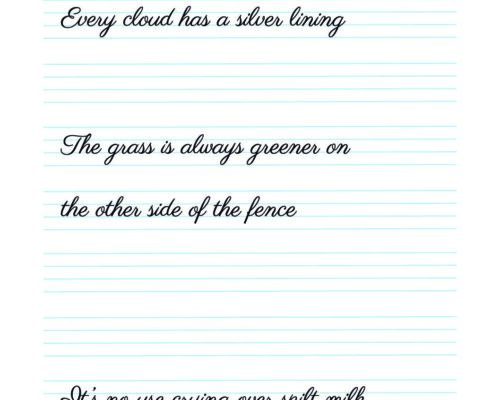 Every cloud has a silver lining
The grass is always greener on
the other side of the fence
It's no use crying over spilt milk